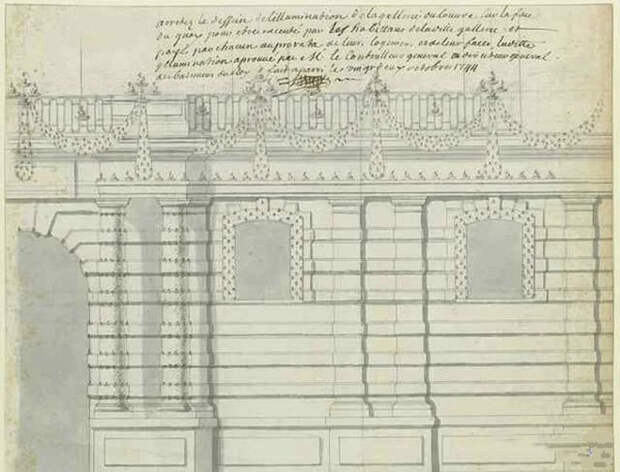 arretez le dessein de lillumination de la gallerie du louvre sur la face
du quay pour estre executé par les habittans de laditte gallerie et
payé par chacun au prorata de leurs logemens et de leur face, laditte
illumination aprouvé par M. le Controlleur general
des bastimens du Roy a paris le vingt deux octobre 1744